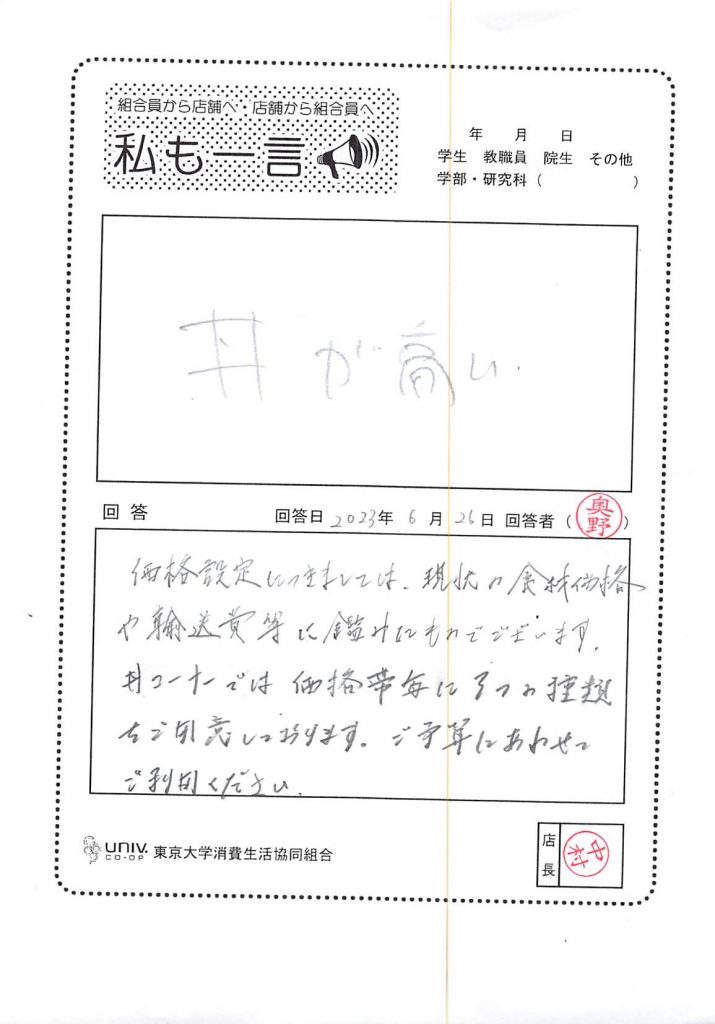 組合員から店舗へ・店舗から組合員へ
私も一言
年 月 日
学生 教職員 院生 その他
学部・研究科 ( )
丼が高い.
回答 回答日 2023年 6月 26日 回答者 (奥野)
価格設定につきましては、現状の食材価格
や輸送費等に鑑みたものでございます。
丼コーナーでは価格帯毎に3つの種類
をご用意しております。ご予算にあわせて
ご利用ください。
UNIV. CO-OP 東京大学消費生活協同組合
店長 中村